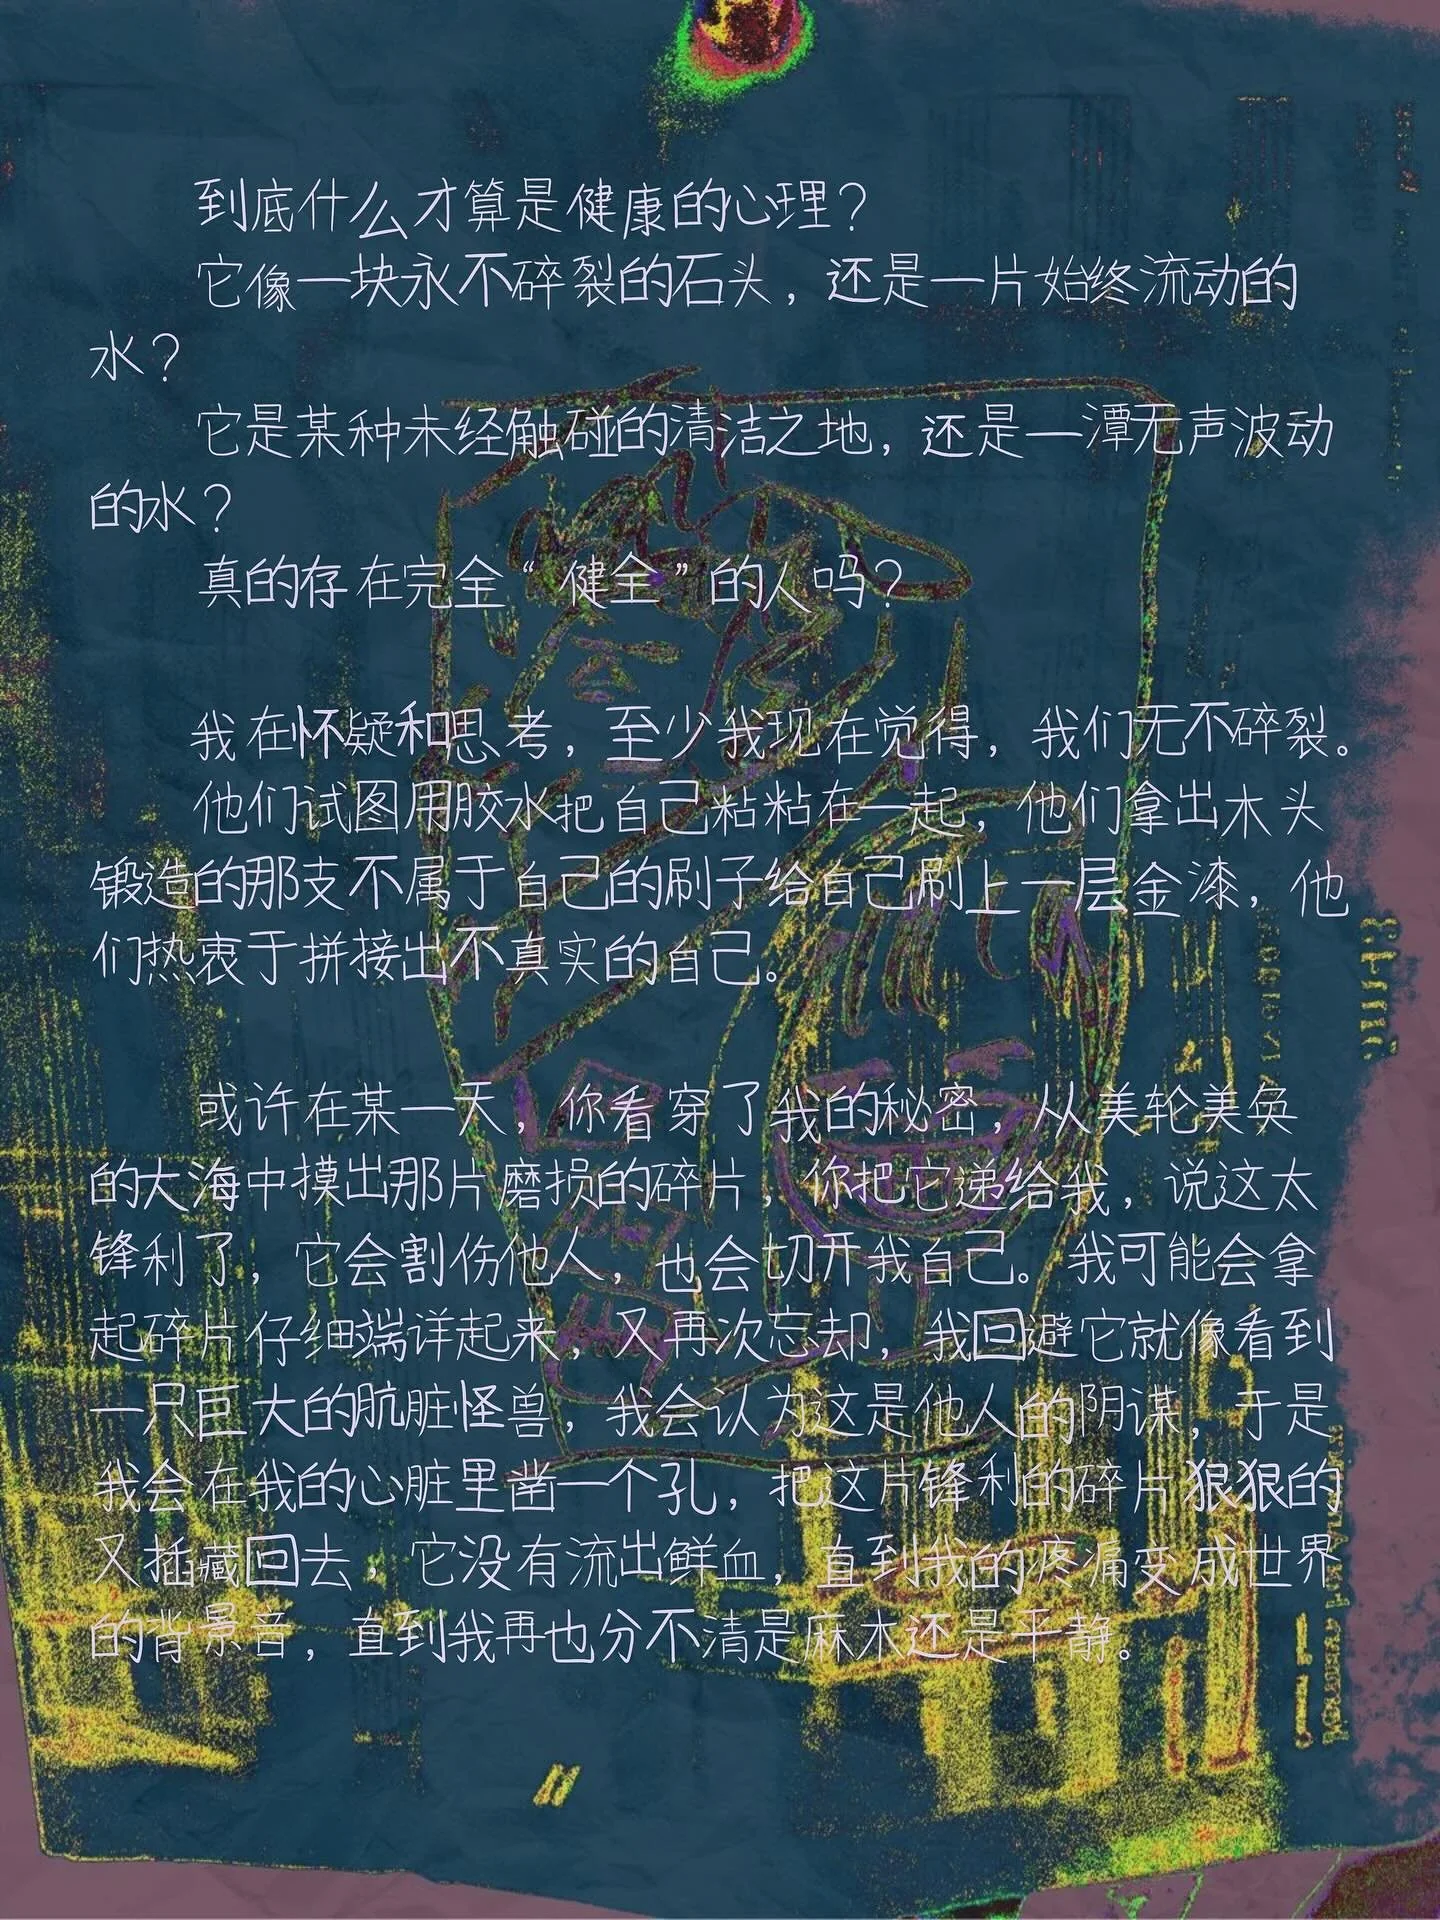 到底什么才算是健康的心理？
它像一块永不碎裂的石头，还是一片始终流动的
水？
它是某种未经触碰的清洁之地，还是一潭无声波动
的水？
真的存在完全“健全”的人吗？
我在怀疑和思考，至少我现在觉得，我们无不碎裂。
他们试图用胶水把自己粘粘在一起，他们拿出木头
锻造的那支不属于自己的刷子给自己刷上一层金漆，他
们热衷于拼接出不真实的自己。
或许在某一天，你看穿了我的秘密，从美轮美奂
的大海中摸出那片磨损的碎片，你把它递给我，说这太
锋利了，它会割伤他人，也会切开我自己。我可能会拿
起碎片仔细端详起来，又再次忘却，我回避它就像看到
一只巨大的肮脏怪兽，我会认为这是他人的阴谋，于是
我会在我的心脏里凿一个孔，把这片锋利的碎片狠狠的
又插藏回去，它没有流出鲜血，直到我的疼痛变成世界
的背景音，直到我再也分不清是麻木还是平静。